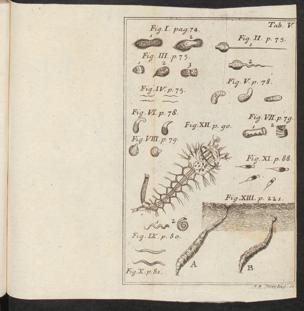 Tab. V.
Fig. I. pag. 74.
1 2
Fig. II. p. 75.
Fig. III. p. 75.
1 2 3
Fig. V. p. 78.
Fig. IV. p. 75.
Fig. VI. p. 78.
Fig. VII. p. 79.
Fig. XII. p. 90.
2
Fig. VIII. p. 79.
Fig. XI. p. 88.
Fig. XIII. p. 221.
2
Fig. IX. p. 80.
A B
Fig. X. p. 81.